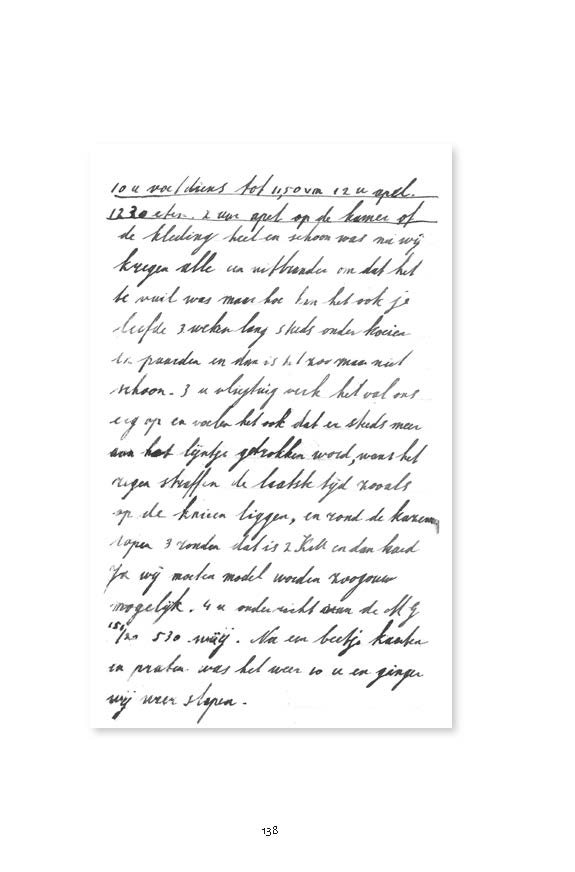 10 u voetdiens tot 11,50 vm 12 u apel.
1230 eten. 2 uur apel op de kamer of
de kleding heel en schoon was na wij
kregen alle een uitbrander omdat het
te vuil was maar hoe kan het ook je
leefde 3 weken lang steds onder koeien
en paarden en dan is het zoo maar niet
schoon. 3 u vliegtuig werk het val ons
erg op en voelen het ook dat er steds meer
aan het lijntje getrokken word, want het
regen straffen de laatste tijd zooals
op de knieen liggen, en rond de kazerne
lopen 3 ronden dat is 2 Kilt en dan hard
Ja wij moeten model worden zoogouw
mogelijk. 4 u onderricht aan de M G
151/20 530 vrij. Na een beetje kaarten
en praten was het weer 10 u en gingen
wij weer slapen.
138